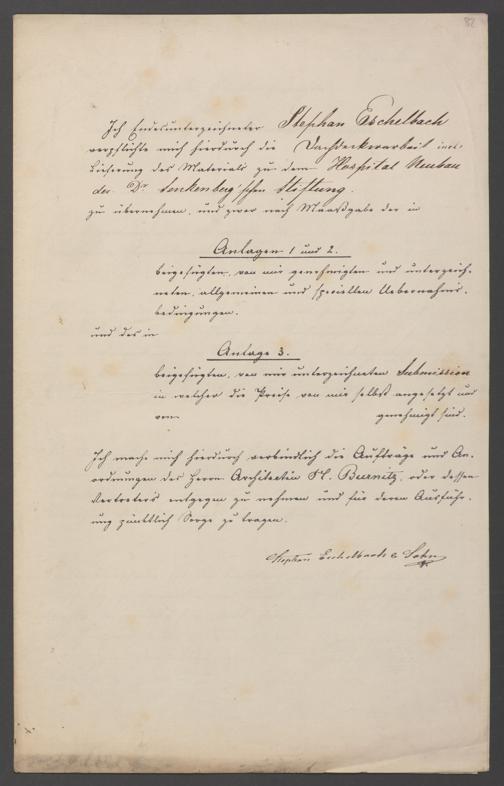 82
Ich Endesunterzeichneter Stephan Eschelbach
verpflichte mich hierdurch die Dachdeckerarbeit incl.
Lieferung des Materials zu dem Hospital Neubau
der Dr. Senkenberg'schen Stiftung.
zu übernehmen, und zwar nach Maaßgabe der in
Anlagen 1 und 2.
beigefügten, von mir genehmigten und unterzeich-
neten, allgemeinen und speciellen Uebernahms-
bedingungen.
und des in
Anlage 3.
beigefügten, von mir unterzeichneten Submission
in welcher die Preise von mir selbst angesetzt und
von genehmigt sind.
Ich mache mich hierdurch verbindlich die Aufträge und An-
ordnungen des Herrn Architecten Burnitz, oder dessen
Vertreters entgegen zu nehmen und für deren Ausführ-
ung pünktlich Sorge zu tragen.
Stephan Eschelbach & Sohn